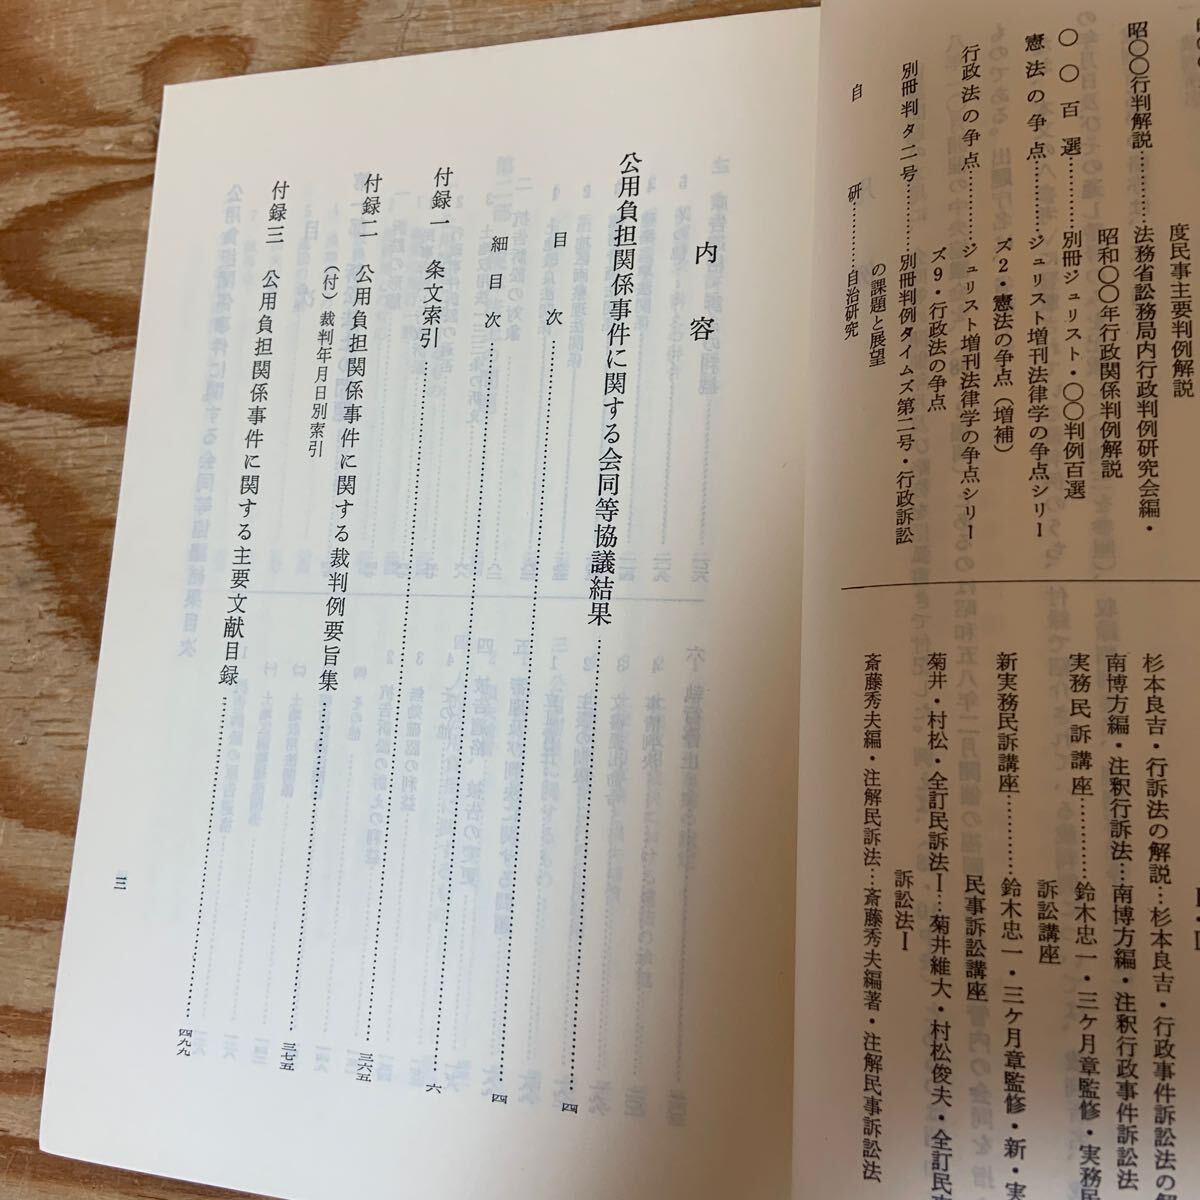 度民事主要判例解説
昭〇〇行判解説………法務省訟務局内行政判例研究会編・
昭和〇〇年行政関係判例解説
〇〇百選…………別冊ジュリスト・〇〇判例百選
憲法の争点…………ジュリスト増刊法律学の争点シリー
ズ2・憲法の争点（増補）
行政法の争点…………ジュリスト増刊法律学の争点シリー
ズ9・行政法の争点
別冊判タ二号…………別冊判例タイムズ第二号・行政訴訟
の課題と展望
自研…………自治研究
杉本良吉・行訴法の解説…杉本良吉・行政事件訴訟法の
南博方編・注釈行訴法…南博方編・注釈行政事件訴訟法
実務民訴講座…………鈴木忠一・三ケ月章監修・実務民
訴訟講座
新実務民訴講座…………鈴木忠一・三ケ月章監修・新・実
民事訴訟講座
菊井・村松・全訂民訴法Ⅰ…菊井維大・村松俊夫・全訂民
訴訟法Ⅰ
斎藤秀夫編・注解民訴法…斎藤秀夫編著・注解民事訴訟法
内容
公用負担関係事件に関する会同等協議結果…………四
目次…………四
細目次…………六
付録一 条文索引…………三六五
付録二 公用負担関係事件に関する裁判例要旨集…………三七五
（付）裁判年月日別索引
付録三 公用負担関係事件に関する主要文献目録…………四九九
三